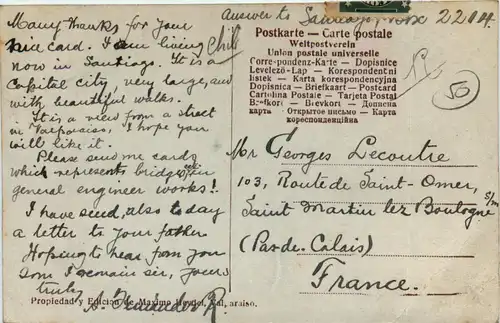 Many thanks for your
nice card. I am living
now in Santiago. It is a
Capital city, very large, and
with beautiful walks.
It is a view from a street
in Valparaiso, I hope you
will like it.
Please send me cards
which represents bridges, or
general engineer works!
I have send, also to day
a letter to your father
Hoping to hear from you
soon I remain sir, yours
truly
Answer to
Chili
22
Postkarte — Carte postale
Weltpostverein
Union postale universelle
Corre-pondenz-Karte — Dopisnice
Levelező-Lap — Korespondentni
listek — Karta korespondencyjna
Dopisnica — Briefkaart — Postcard
Cartolina Postale — Tarjeta Postal
Brefkort — Brevkort — Дописна
карта — Открытое письмо — Карта
кореспонденцийна
50
Mr Georges Lecoutre
103, Route de Saint-Omer,
Saint Martin lez Boulogne s/m
(Pas-de-Calais)
France.
Propiedad y Edicion de Maximo